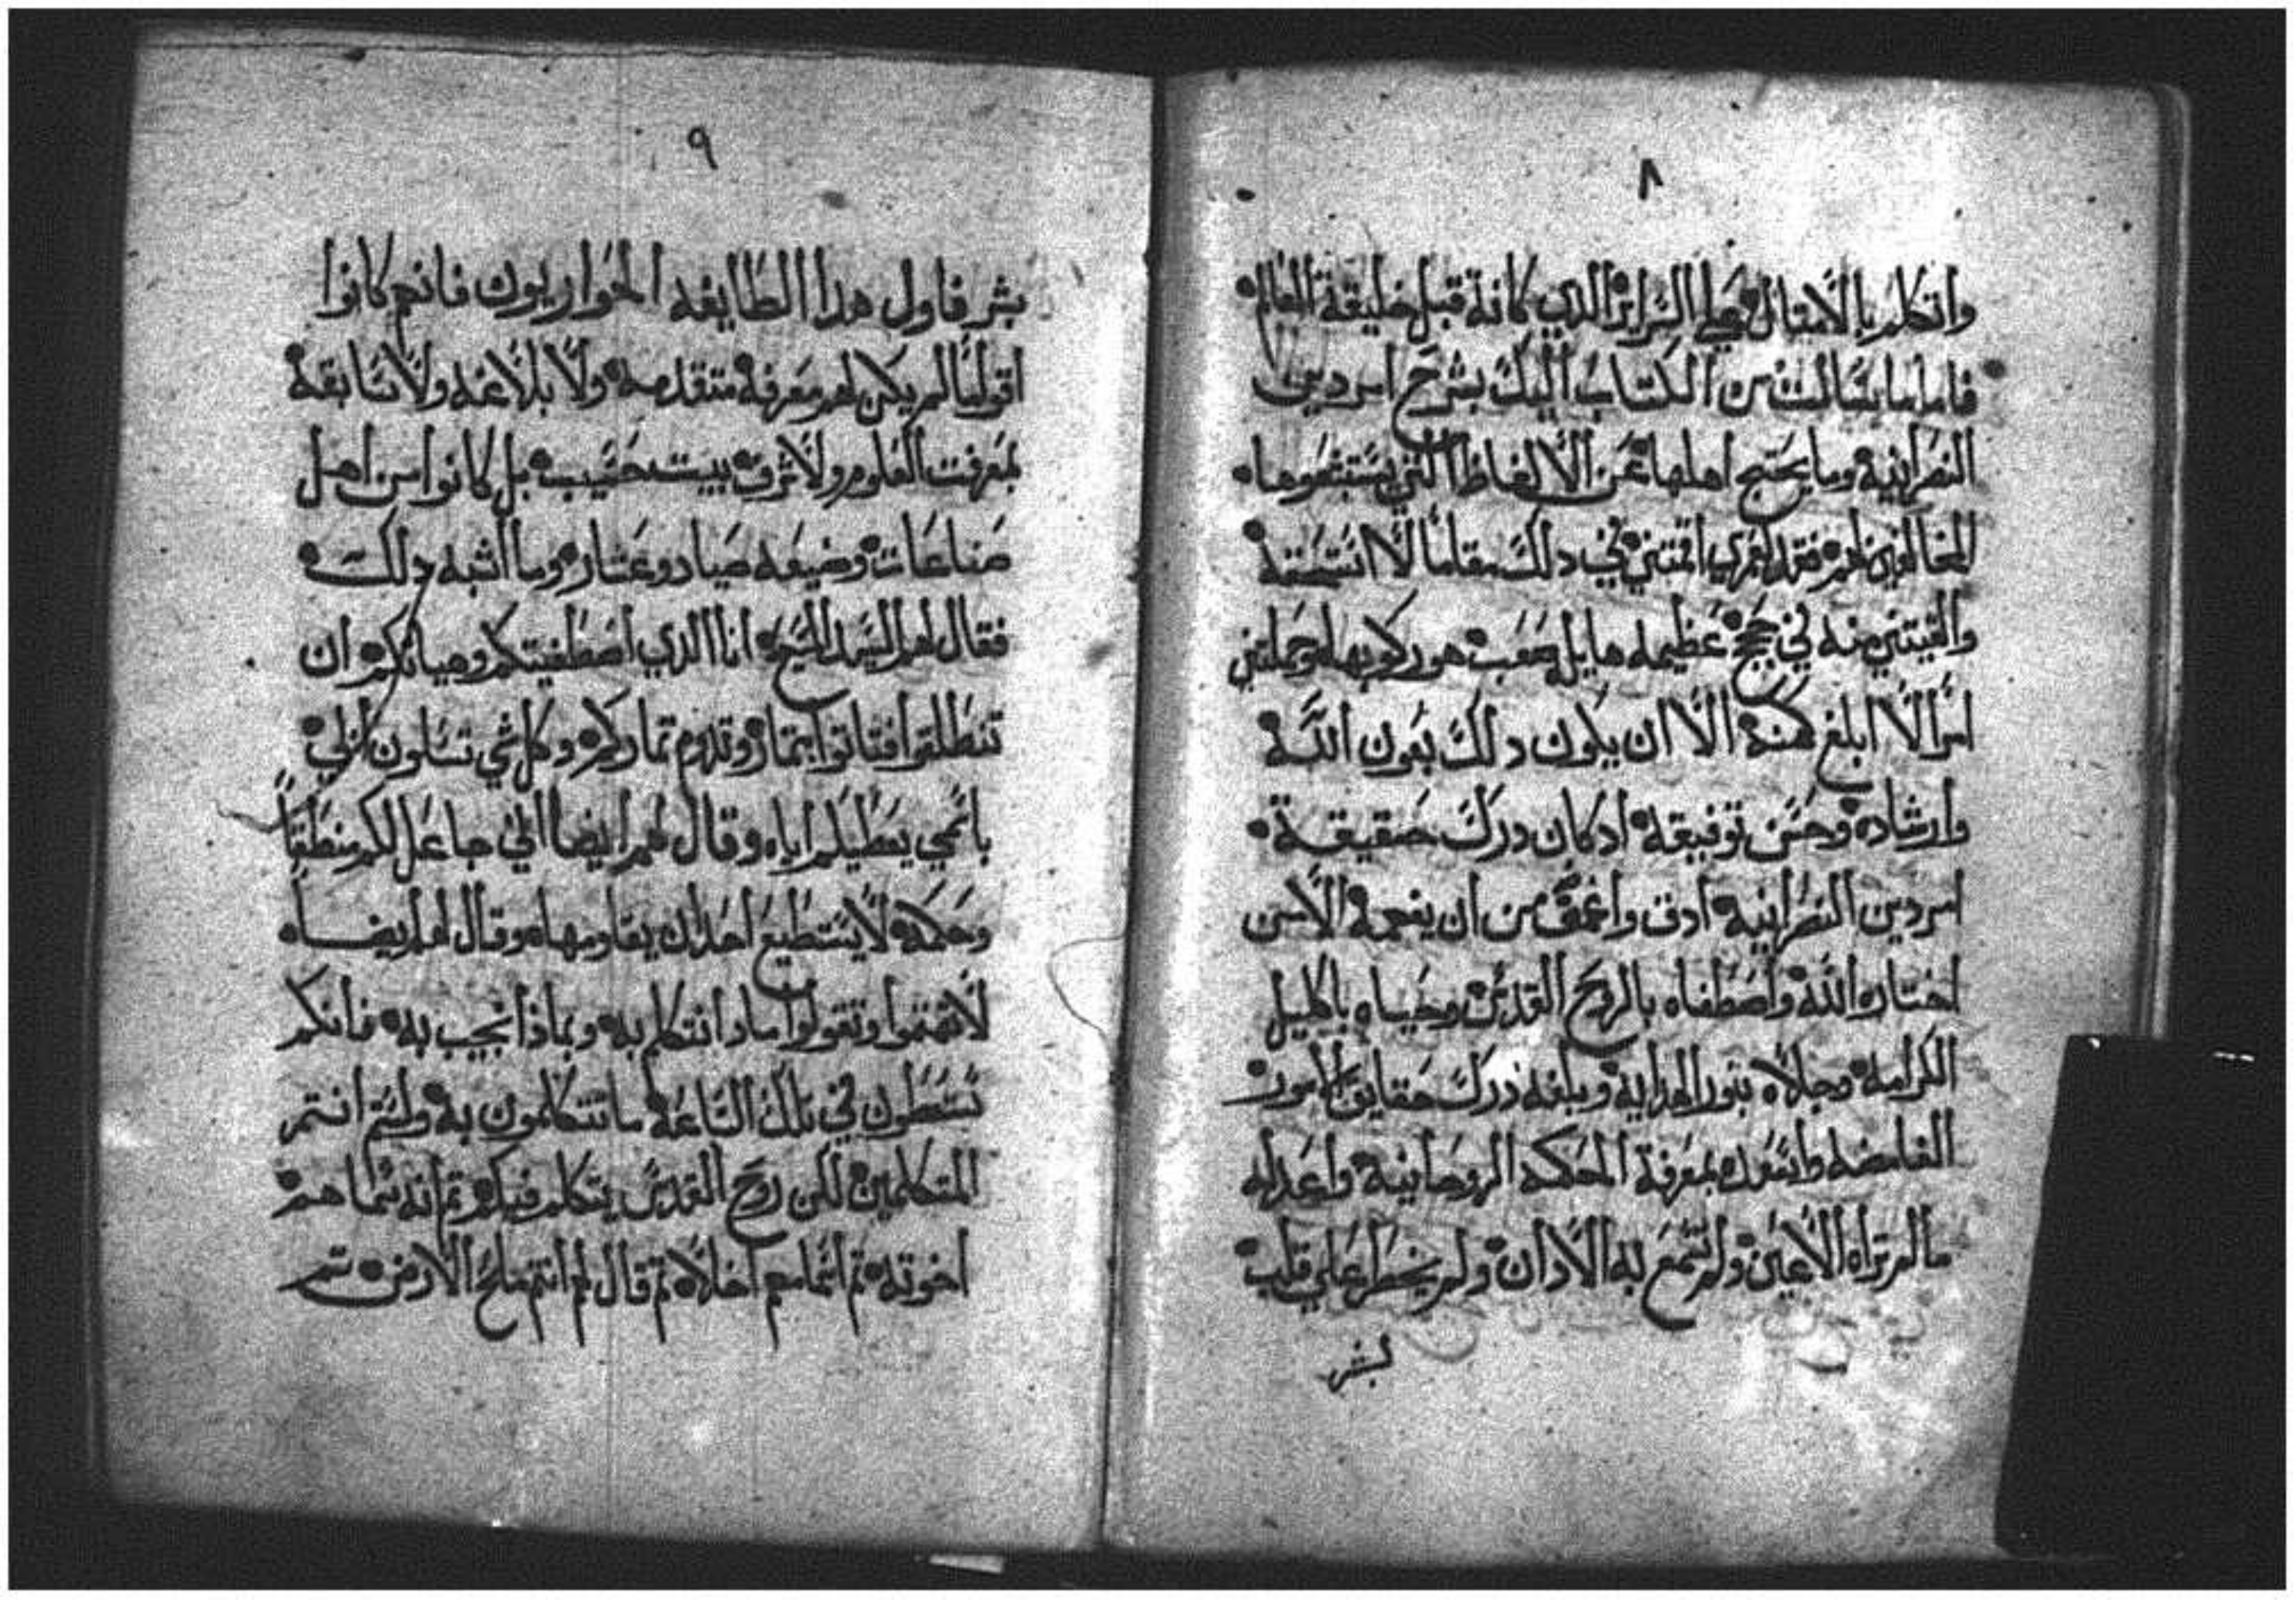 ٨
واتكلم بالامثال علي السراير الذي كانة قبل خليقة العالم
فاما ما سالت من الكتاب اليك بشرح امر دين
النصرانية وما يحتج اهلها عن الالفاظ التي يستبشعوها
المخالفون لهم فقد لعمري اقمتني في دلك مقاما لا استحقه
والقيتني منه في لجج عظيمه هايل صعب هو ركوبها وحملتني
امرا لا ابلغ كنهه الا ان يكون دلك بعون الله
وارشاده وحسن توفيقه ادكان درك حقيقة
امر دين النصرانية ادق واغمق من ان يفهمه الا من
اختاره الله واصطفاه بالروح القدس وحباه باكليل
الكرامه وجلاه بنور الهدايه وبلغه درك حقايق الامور
الغامضه واسعده بمعرفة الحكمه الروحانيه واعد له
ما لم تراه الاعين ولم تسمع به الادان ولم يخطر علي قلب
بشر
٩
بشر فاول هدا الطايفه الحواريون فانهم كانوا
اقواما لم يكن لهم معرفه متقدمه ولا بلاغه ولا سابقة
بمعرفت العلوم ولا شرف بيت حسيب بل كانوا من اهل
صناعات وضيعه صياد وعشار وما اشبه دلك
فقال لهم السيد المسيح انا الدي اصطفيتكم وهياتكم ان
تنطلقوا فتاتوا بتمار وتدوم تماركم وكل شي تسالون ابي
باسمي يعطيكم اياه وقال لهم ايضا اني جاعل لكم منطقا
وحكمه لا يستطيع احدا ان يقاومها وقال لهم ايضا
لا تهتموا وتقولوا مادا نتكلم به وبماذا نجيب به فانكم
تعطون في تلك الساعه ما تتكلمون به ولستم انتم
المتكلمين لكن روح القدس يتكلم فيكم تم انه سماهم
اخوته تم اسماهم اخلاه تم قال لهم انتم ملح الارض تم